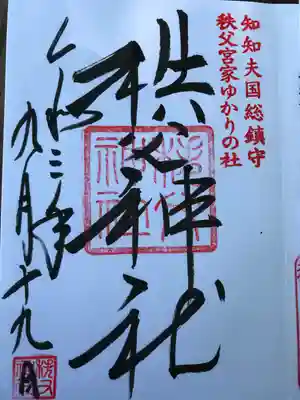 知知夫国総鎮守
秩父宮家ゆかりの社
秩父神社
令和三年
九月十九日